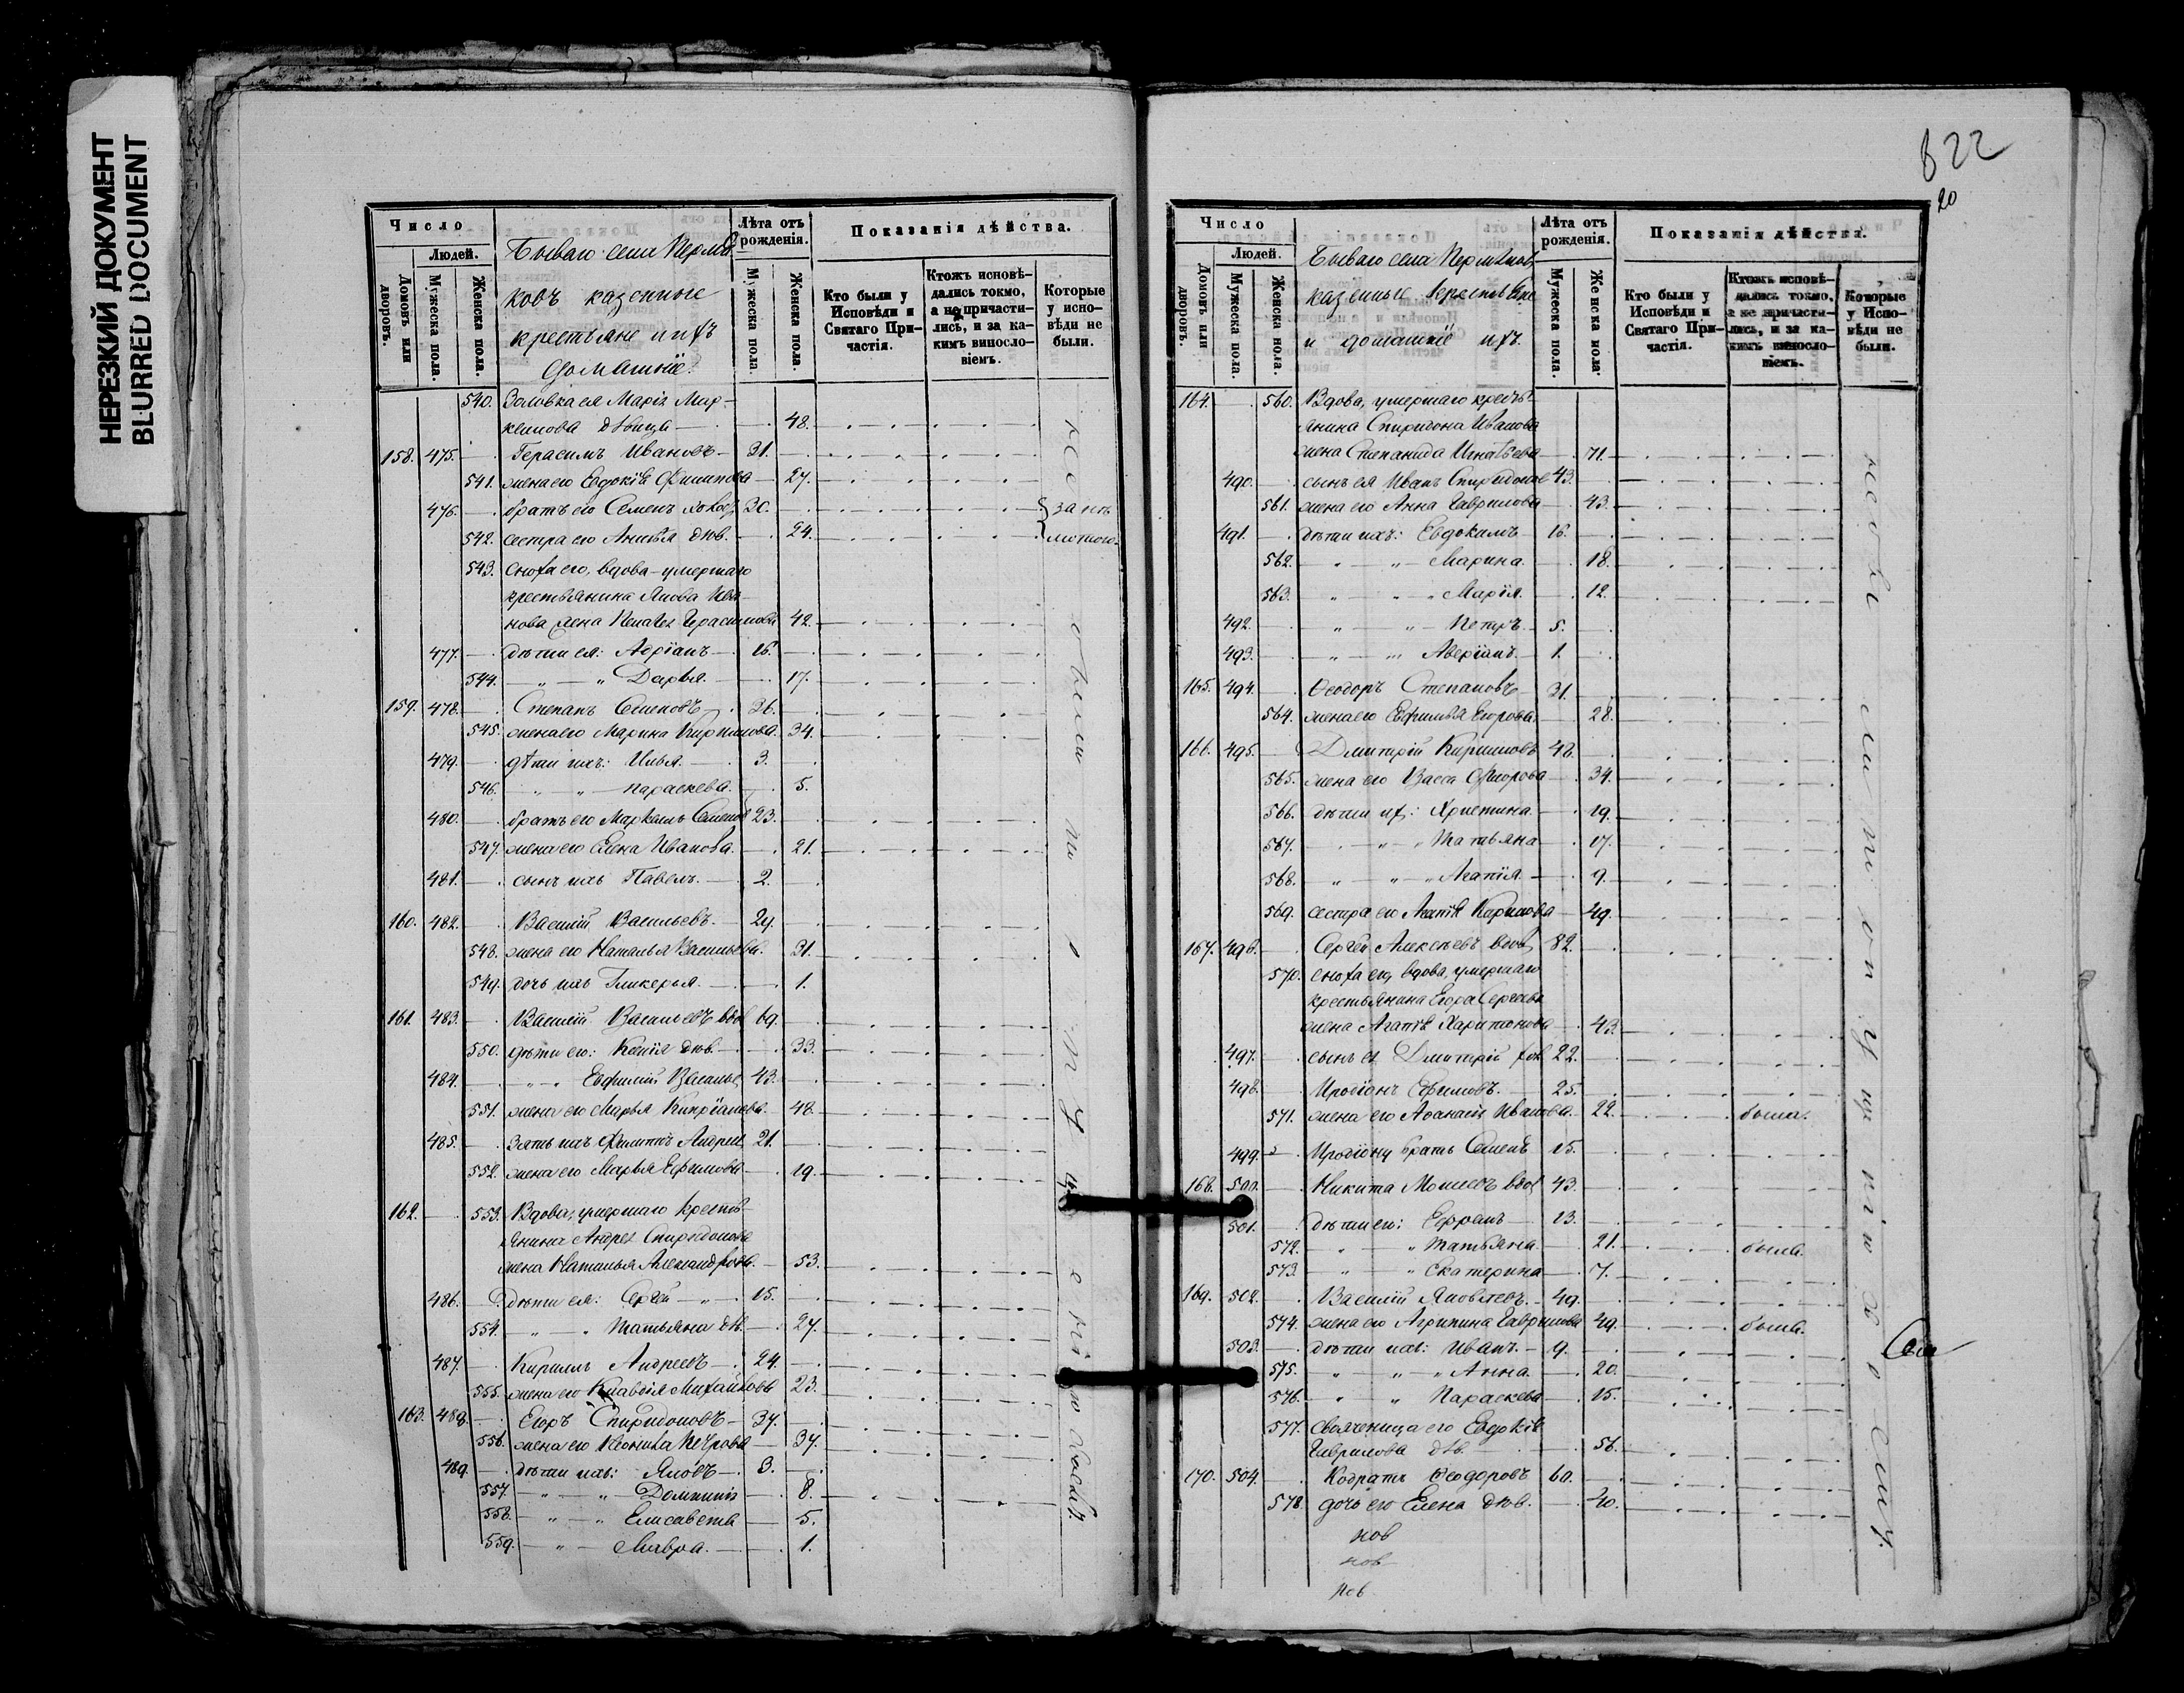 НЕРЕЗКИЙ ДОКУМЕНТ
BLURRED DOCUMENT
Число
Людей.
Домовъ или дворовъ.
Мужеска пола.
Женска пола.
казенные
крестьяне и ихъ
домашніе.
Лѣта отъ рожденія.
Мужеска пола.
Женска пола.
Показанія дѣйства.
Кто были у Исповѣди и Святаго Причастія.
Ктожъ исповѣдались токмо, а не причастились, и за какимъ винословіемъ.
Которые у исповѣди не были.
540. Золовка ея Марія Мар-
келова дѣвица 48.
158. 475. Герасимъ Ивановъ 31.
541. жена его Евдокія Филипова 27.
476. братъ его Семенъ холост 30.
542. сестра его Анисья дѣв. 24.
543. сноха его, вдова умершаго
крестьянина Якова Ива-
нова жена Герасимова 42.
477. дѣти ея: Адріанъ 16.
544. " " Дарья 17.
159. 478. Степанъ Семеновъ 36.
545. жена его Марина Кирилова 34.
479. дѣти ихъ: Илья 3.
546. " " параскева 5.
480. братъ его Маркелъ Семенов 23.
547. жена его Елена Иванова 21.
481. сынъ ихъ Павелъ 2.
160. 482. Василій Васильевъ 29.
548. жена его Наталья Васильева 31.
549. дочь ихъ Гликерья 1.
161. 483. Василій Васильевъ вдов 69.
550. дѣти его: Ксенія дѣв. 33.
484. " " Евфимій Васильев 43.
551. жена его Марья Кипріанова 48.
485. зять ихъ Филиппъ Андреев 21.
552. жена его Марья Ефимова 19.
162. 553. Вдова, умершаго кресть-
янина Андрея Спиридонова
жена Наталья Александрова 53.
486. дѣти ея: Сергѣй 15.
554. " " Татьяна дѣв. 27.
487. Кирилъ Андреевъ 24.
555. жена его Клавдія Михайлова 23.
163. 488. Егоръ Спиридоновъ 37.
556. жена его Петрова 37.
489. дѣти ихъ: Яковъ 3.
557. " " Домникія 8.
558. " " Елисавета 5.
559. " Мавра 1.
822
20
Число
Людей.
Домовъ или дворовъ.
Мужеска пола.
Женска пола.
казенные
и домашніе ихъ.
Лѣта отъ рожденія.
Мужеска пола.
Женска пола.
Показанія дѣйства.
Кто были у Исповѣди и Святаго Причастія.
Ктожъ исповѣдались токмо, а не причастились, и за какимъ винословіемъ.
Которые у Исповѣди не были.
164. 560. Вдова, умершаго кресть-
янина Спиридона Иванова
жена Степанида Игнатьева 71.
490. сынъ ея Иванъ Спиридонов 43.
561. жена его Анна Гаврилова 43.
491. дѣти ихъ: Евдокимъ 16.
562. " " Марина 18.
563. " " Марія 12.
492. " " Петръ 5.
493. " " Аверіанъ 1.
165. 494. Ѳеодоръ Степановъ 31.
564. жена его Ефимья Егорова 28.
166. 495. Дмитрій Кириловъ 48.
565. жена его Васса Флорова 34.
566. дѣти их: Христина 19.
567. " " Татьяна 17.
568. " " Агапія 9.
569. сестра его Агапія Кирилова 49.
167. 496. Сергѣй Алексѣевъ вдов 82.
570. сноха его, вдова, умершаго
крестьянина Егора Сергѣева
жена Агапія Харитонова 43.
497. сынъ ея Дмитрій хол. 22.
498. Иродіонъ Ефимовъ 25.
571. жена его Аѳанасія Иванова 22. была.
499. Иродіону братъ Семенъ 15.
168. 500. Никита Моисеев вдов 43.
501. дѣти его: Ефремъ 13.
572. " " Татьяна 21. была.
573. " " Екатерина 7.
169. 502. Василій Яковлевъ 49.
574. жена его Агрипина Гаврилова 49. была.
503. дѣти ихъ: Иванъ 9.
575. " " Анна 20.
576. " " Параскева 15.
577. свояченица его Евдокія
Гаврилова дѣв. 56.
170. 504. Кодратъ Ѳеодоровъ 60.
578. дочь его Елена дѣв. 40.
нов
нов
нов